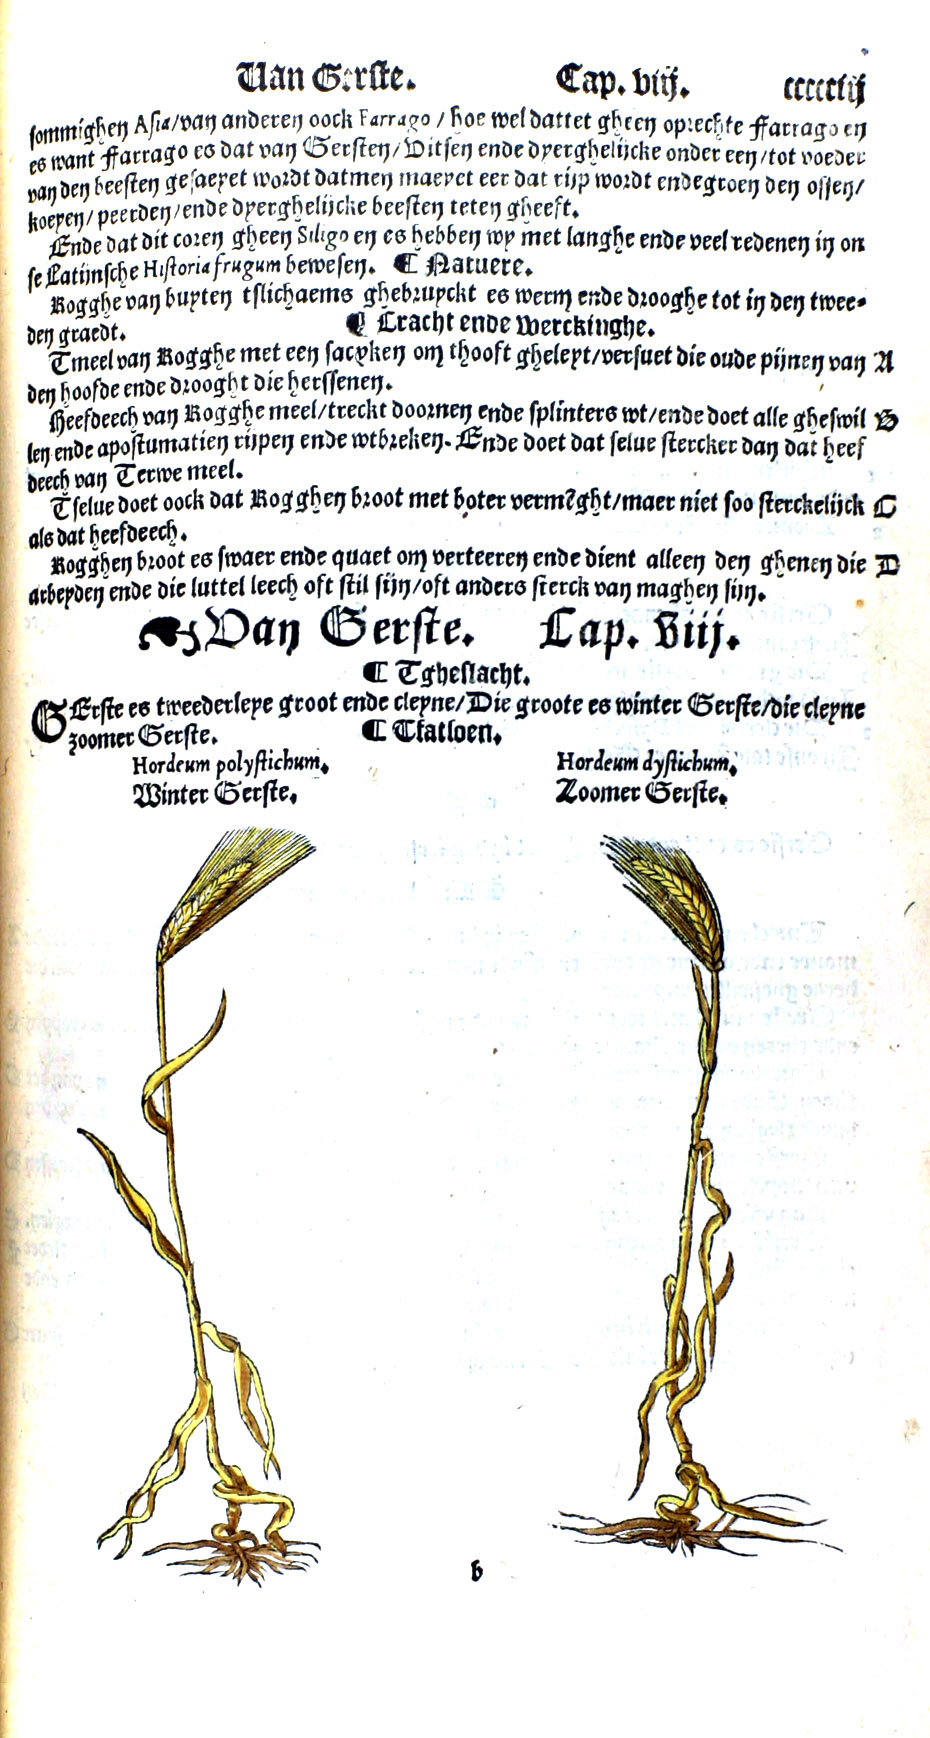 Van Gerste. Cap. viij. ccccclij
sommighen Asia/van anderen oock Farrago / hoe wel dattet gheen oprechte Farrago en
es want Farrago es dat van Gersten/Vitsen ende dyerghelijcke onder een/tot voeder
van den beesten gesaeyet wordt datmen maeyet eer dat rijp wordt ende groen den ossen/
koeyen/peerden/ende dyerghelijcke beesten teten gheeft.
Ende dat dit coren gheen Siligo en es hebben wy met langhe ende veel redenen in on
se Latijnsche Historia frugum bewesen. ¶ Natuere.
Rogghe van buyten tslichaems ghebruyckt es werm ende drooghe tot in den twee-
den graedt. ¶ Cracht ende werckinghe.
Tmeel van Rogghe met een sacxken om thooft gheleyt/versuet die oude pijnen van A
den hoofde ende drooght die herssenen.
Heefdeech van Rogghe meel/treckt doornen ende splinters wt/ende doet alle gheswil B
len ende apostumatien rijpen ende wtbreken. Ende doet dat selue stercker dan dat heef
deech van Terwe meel.
Tselue doet oock dat Rogghen broot met boter vermēght/maer niet soo sterckelijck C
als dat heefdeech.
Rogghen broot es swaer ende quaet om verteeren ende dient alleen den ghenen die D
arbeyden ende die luttel leech oft stil sijn/oft anders sterck van maghen sijn.
Van Gerste. Cap. Viij.
¶ Tgheslacht.
GErste es tweederleye groot ende cleyne/Die groote es winter Gerste/die cleyne
zoomer Gerste. ¶ Tfatsoen.
Hordeum polystichum. Hordeum dystichum.
Winter Gerste. Zoomer Gerste.
b